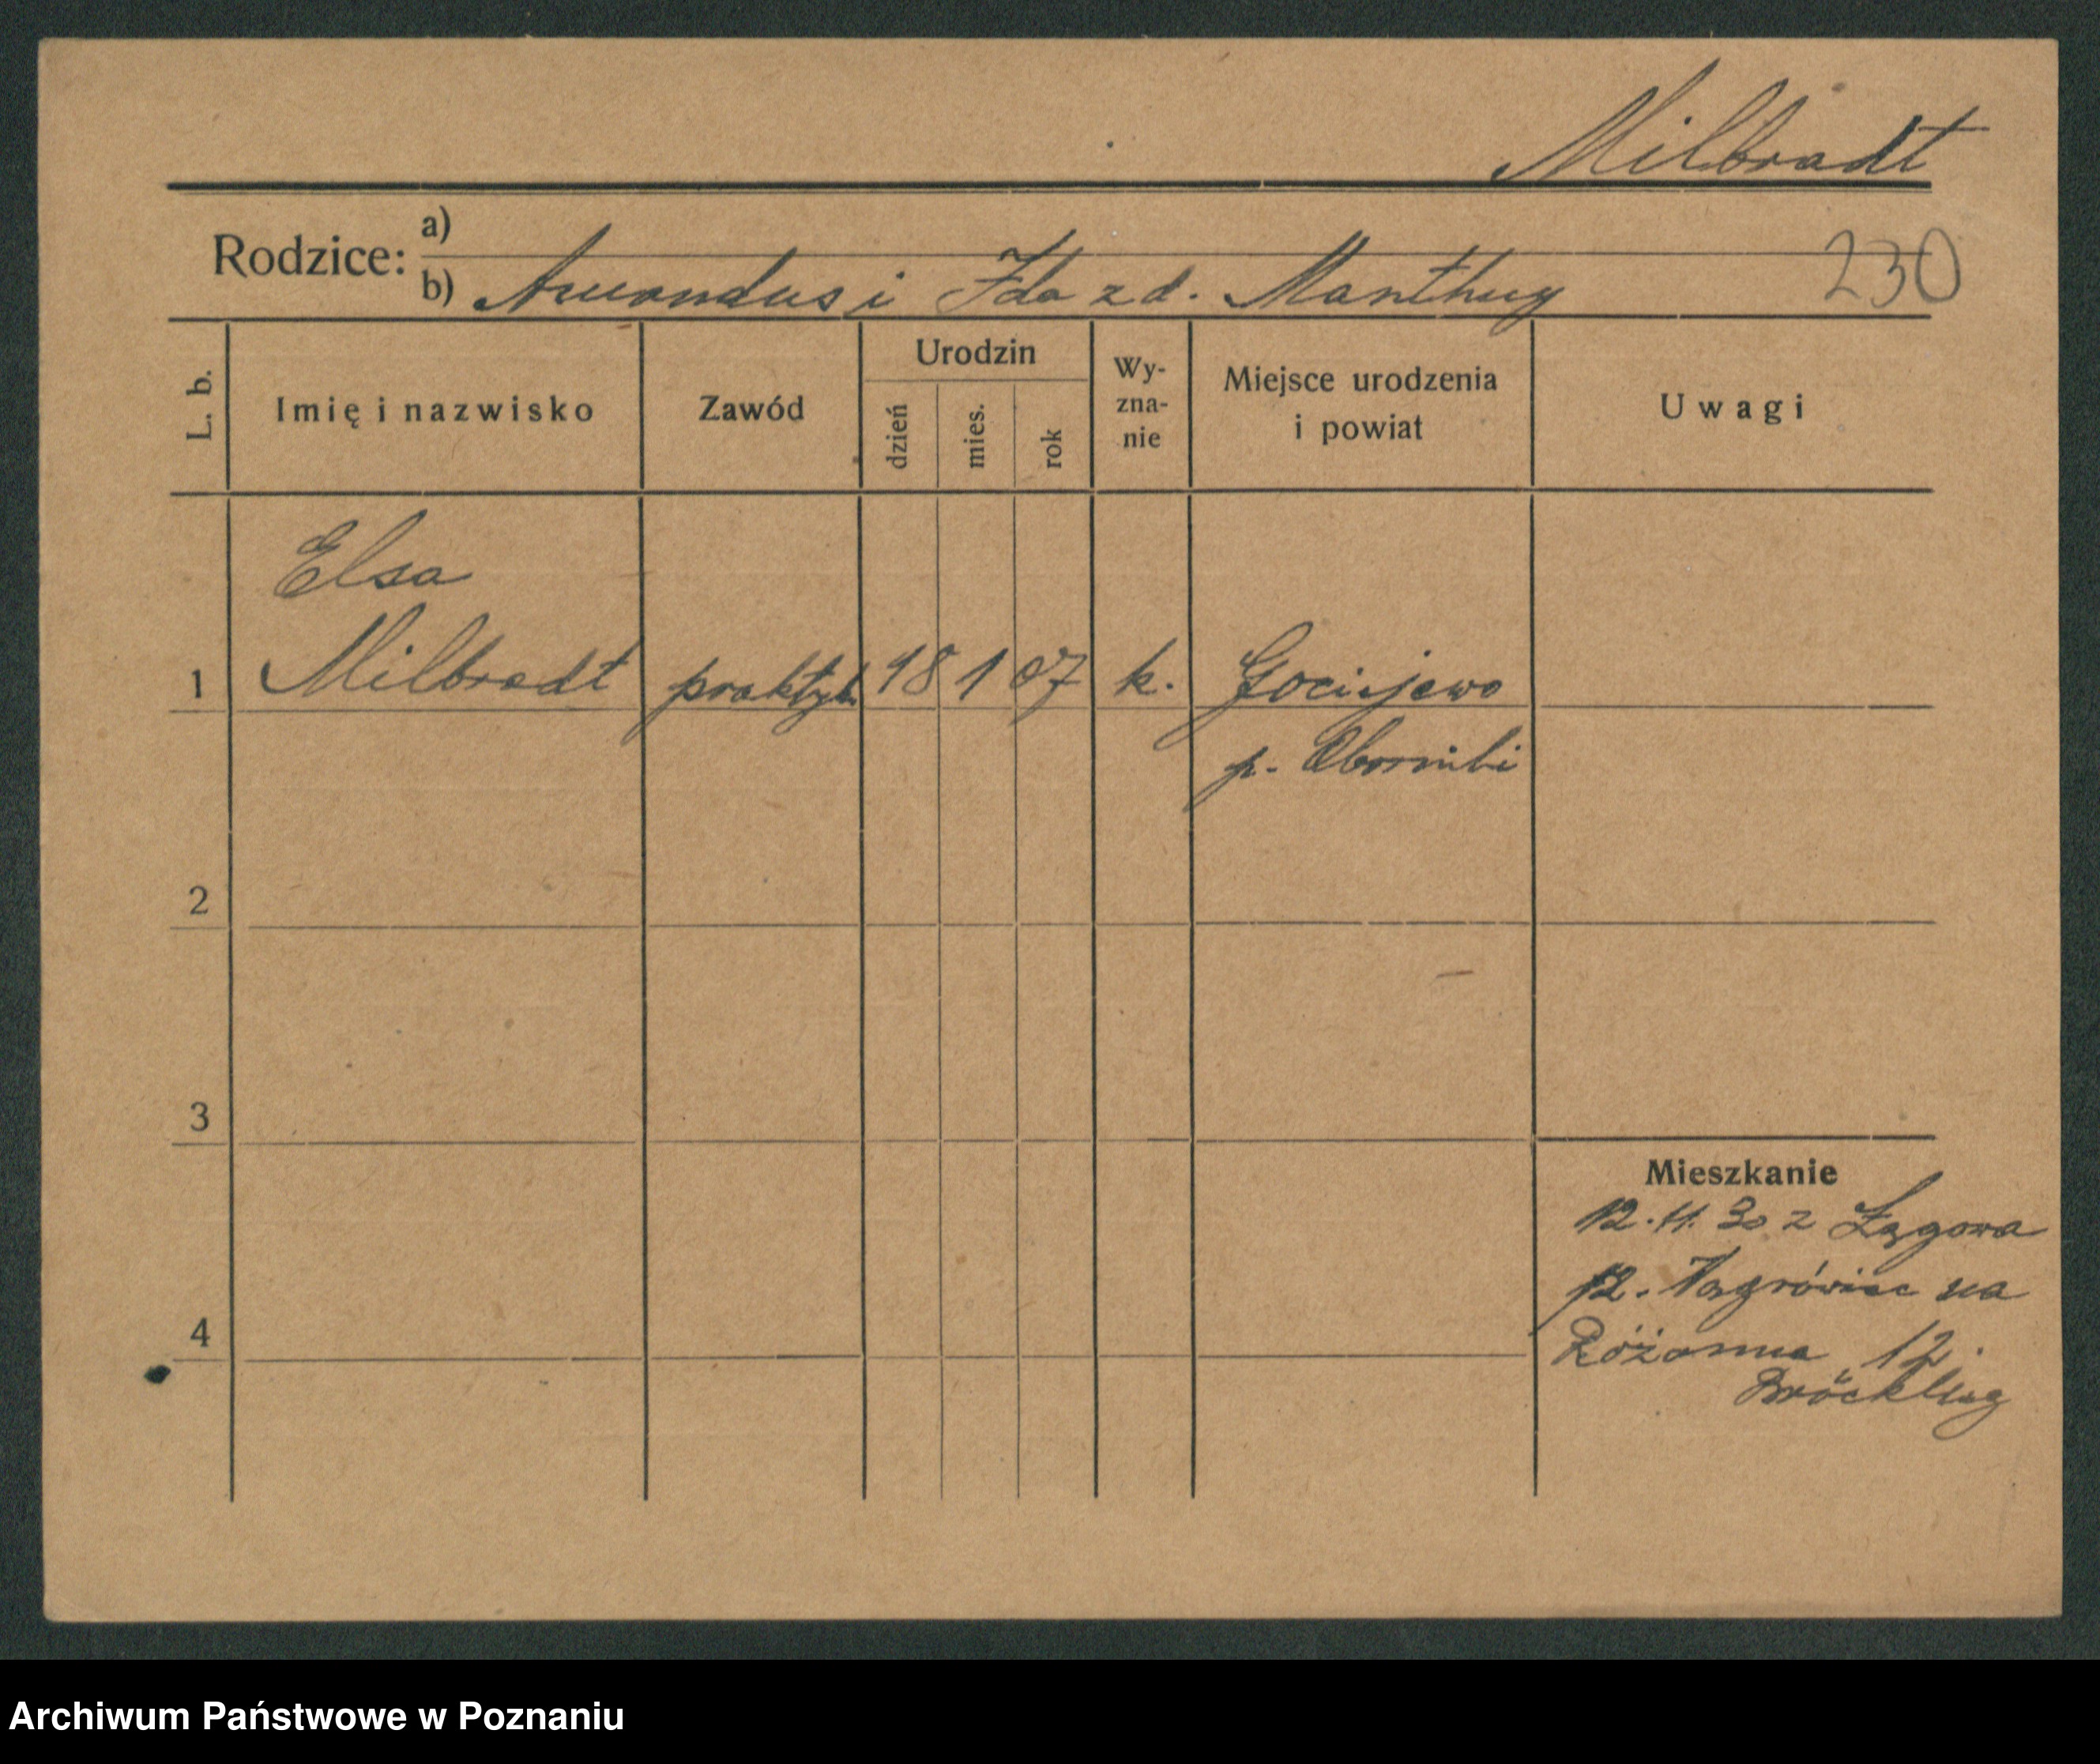 Milbradt
Rodzice: a)
b) Amandus i Ida z d. Manthey
230
L. b.
Imię i nazwisko
Zawód
Urodzin
dzień
mies.
rok
Wy-
zna-
nie
Miejsce urodzenia
i powiat
Uwagi
Elsa
1 Milbradt praktyk. 18 1 07 k. Gociejewo
p. Oborniki
2
3
4
Mieszkanie
12.11.30 z Łęgowa
p. Wągrówiec na
Różanna 12.
Bröckling
Archiwum Państwowe w Poznaniu